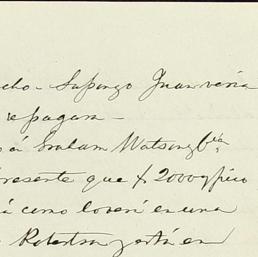 cho - Supongo Juan venia
se pagara -
á Graham Watson y Cía
presente que £ 2000 y pico
á como lo veri en una
Robertson y está en